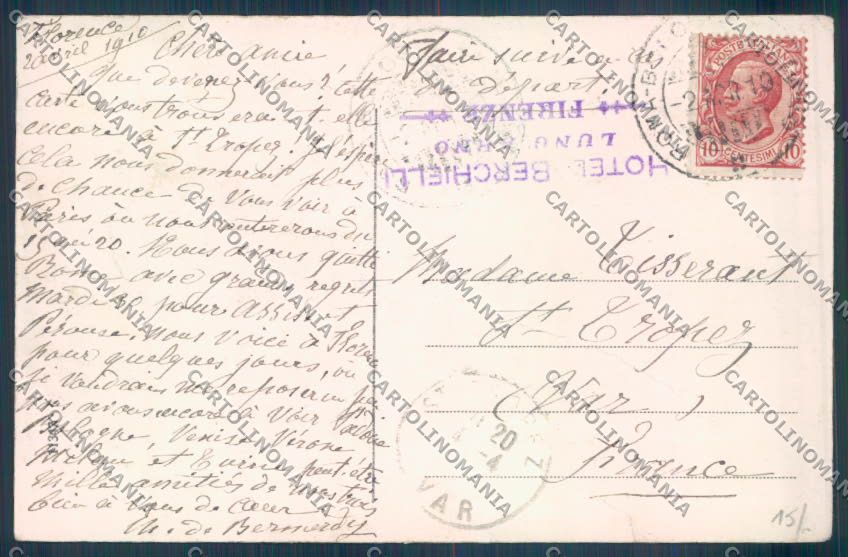 Florence
20 avril 1910
Chère amie
Que devenez vous? Cette
carte vous trouvera t-elle
encore à St Tropez? J'espère
cela nous donnerait plus
de chance de vous voir à
Paris où nous rentrerons du
15 au 20. Nous avons quitté
Rome avec grands regrets
mardi pour Assise et
Pérouse, nous voici à Florence
pour quelques jours, où
je voudrais me reposer un peu
nous avons encore à voir Padoue
Bologne, Venise Vérone
Milan et Turin peut-être
Mille amitiés de nous trois
bien à vous de cœur
M. de Bermerdy
Faire suivre en cas
de départ.
HOTEL BERCHIELLI
LUNG'ARNO
FIRENZE
POSTE ITALIANE
10 CENTESIMI 10
Madame Tisserant
St Tropez
Var
France
20
-4
VAR
15/-
CARTOLINOMANIA